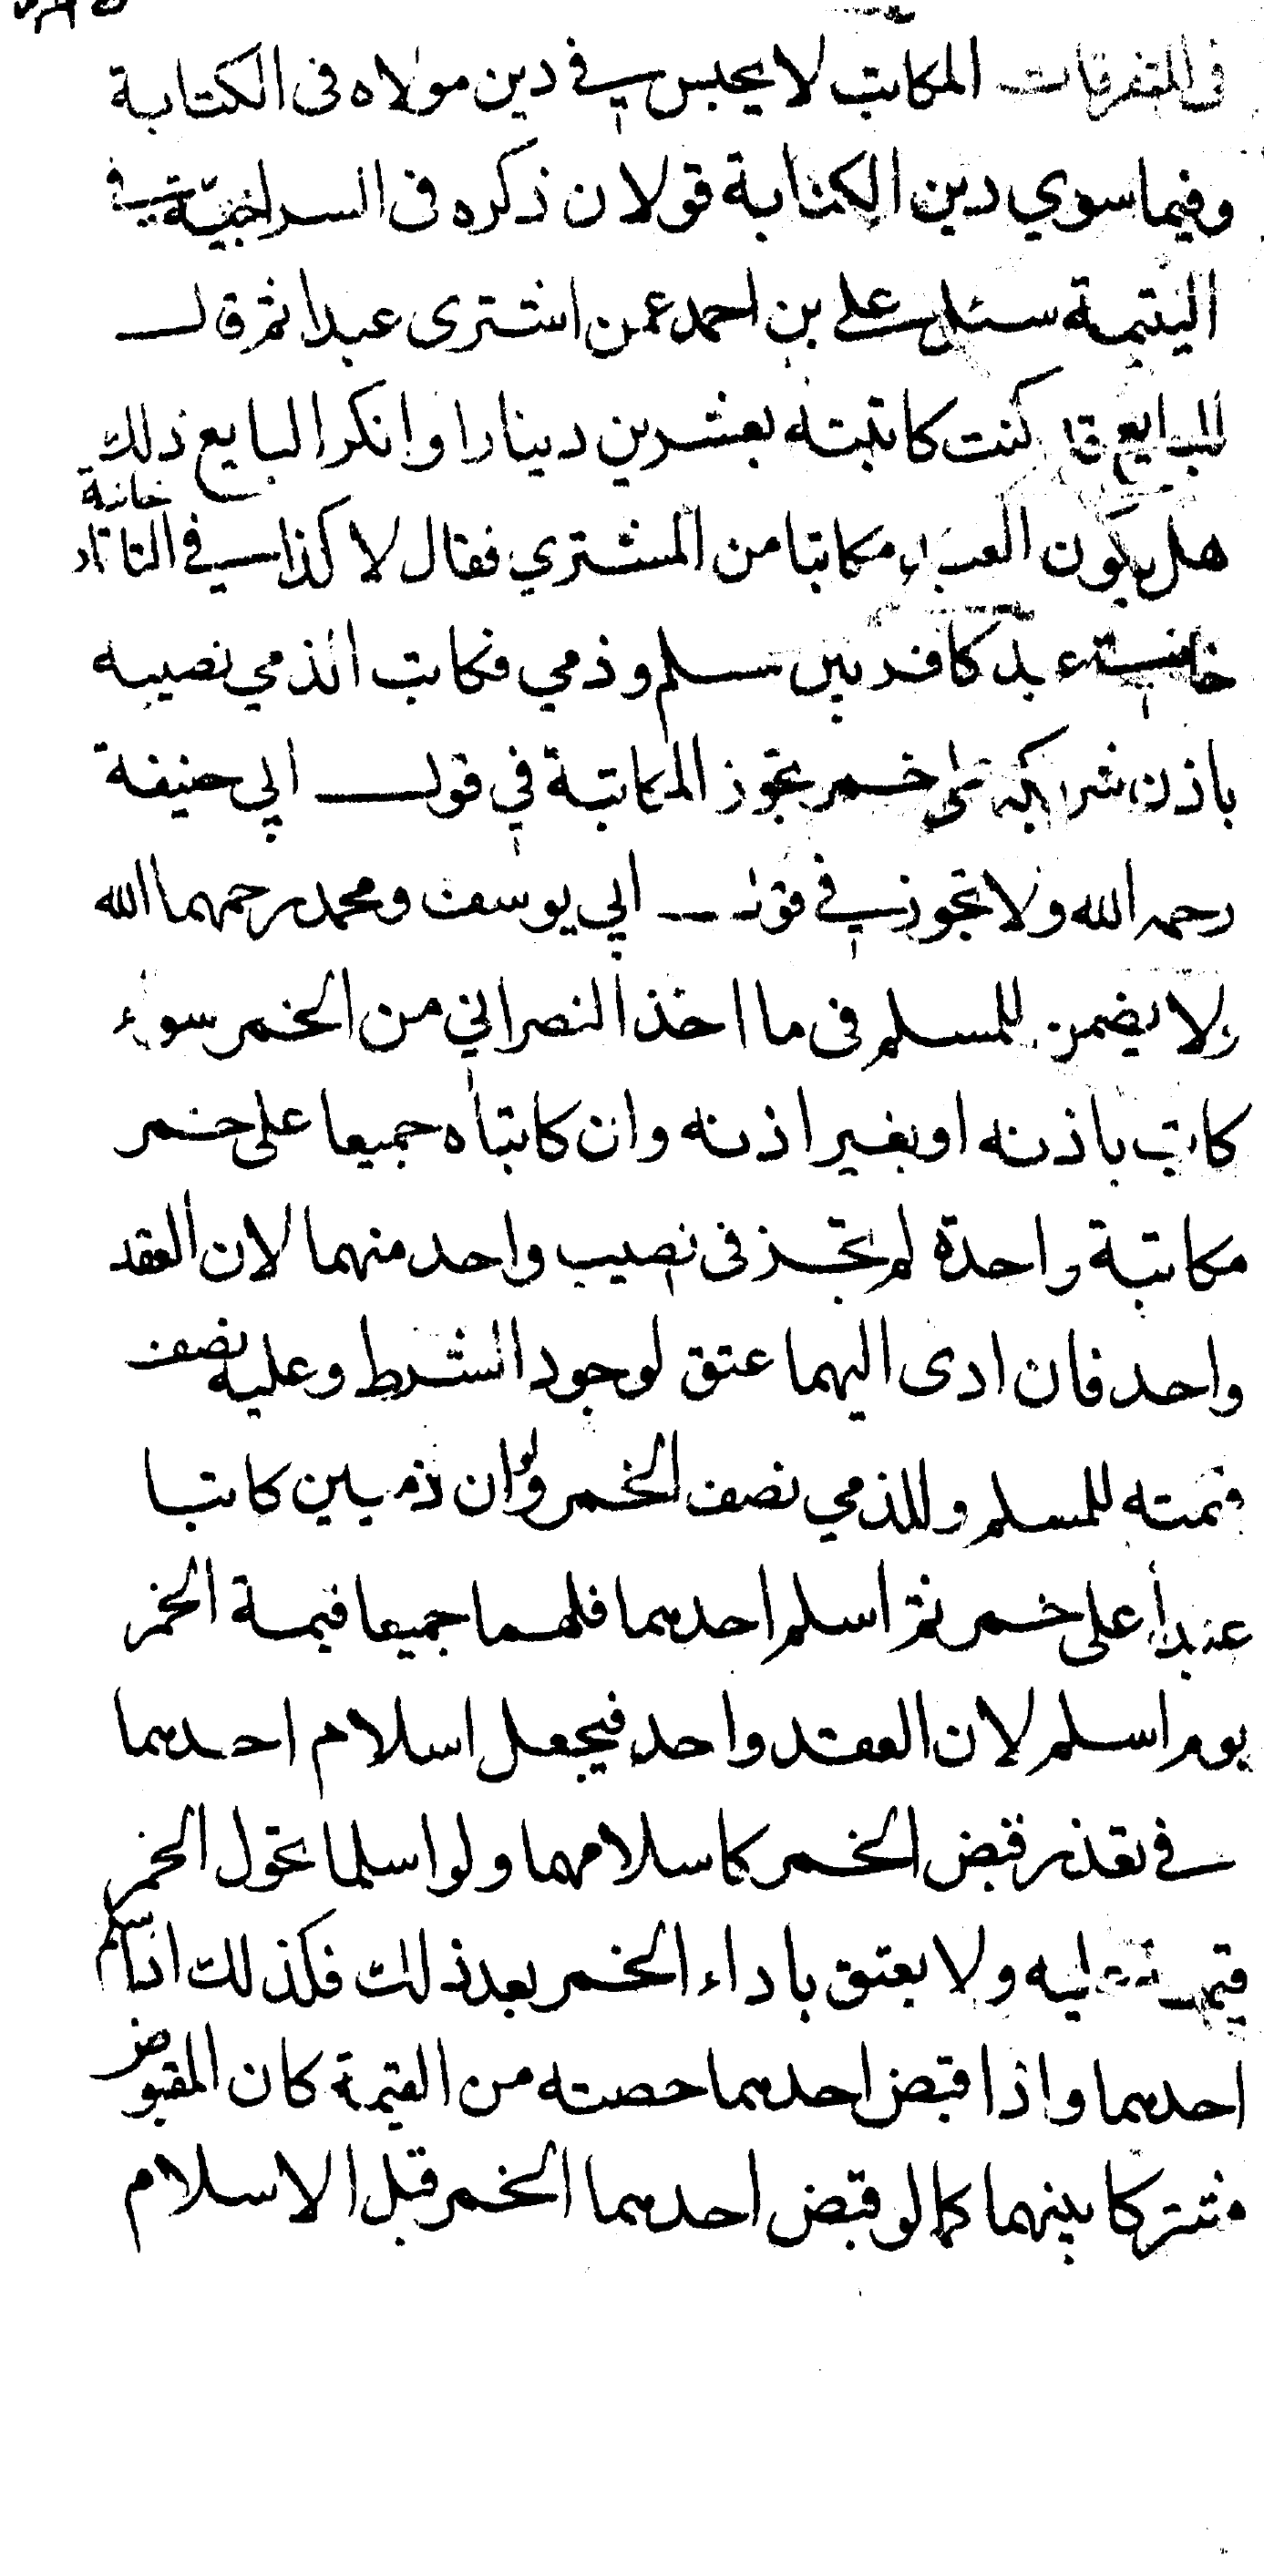 في المتفرقات المكاتب لا يحبس في دين مولاه في الكتابة
وفيما سوي دين الكتابة قولان ذكره في السراجية في
اليتيمة سئل علي بن احمد عمن اشترى عبدا ثم قال
للبايع قد كنت كاتبته بعشرين دينارا وانكر البايع ذلك
هل يكون العبد مكاتبا من المشتري فقال لا كذا في التاتار
خانية
خانية عبد كافر بين مسلم وذمي فكاتب الذمي نصيبه
باذن شريكه على خمر تجوز المكاتبة في قول ابي حنيفة
رحمه الله ولا تجوز في قول ابي يوسف ومحمد رحمهما الله
ولا يضمن للمسلم في ما اخذ النصراني من الخمر سواء
كاتب باذنه او بغير اذنه وان كاتباه جميعا على خمر
مكاتبة واحدة لم تجز في نصيب واحد منهما لان العقد
واحد فان ادى اليهما عتق لوجود الشرط وعليه نصف
قيمته للمسلم وللذمي نصف الخمر ولو ان ذميين كاتبا
عبدا على خمر ثم اسلم احدهما فلهما جميعا قيمة الخمر
يوم اسلم لان العقد واحد فيجعل اسلام احدهما
في تعذر قبض الخمر كاسلامهما ولو اسلما تحول الخمر
قيمة عليه ولا يعتق باداء الخمر بعد ذلك فكذلك اذا اسلم
احدهما واذا قبض احدهما حصته من القيمة كان المقبوض
مشتركا بينهما كما لو قبض احدهما الخمر قبل الاسلام